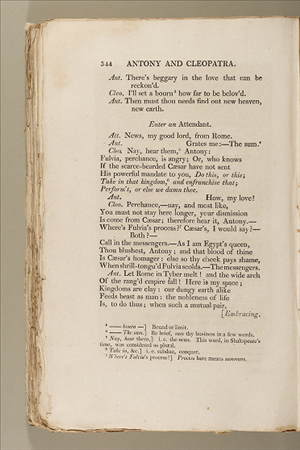 344 ANTONY AND CLEOPATRA.
Ant. There's beggary in the love that can be
reckon'd.
Cleo. I'll set a bourn⁴ how far to be belov'd.
Ant. Then must thou needs find out new heaven,
new earth.
Enter an Attendant.
Att. News, my good lord, from Rome.
Ant. Grates me:—The sum.⁴
Cleo. Nay, hear them,⁵ Antony:
Fulvia, perchance, is angry; Or, who knows
If the scarce-bearded Cæsar have not sent
His powerful mandate to you, Do this, or this;
Take in that kingdom,⁶ and enfranchise that;
Perform't, or else we damn thee.
Ant. How, my love!
Cleo. Perchance,—nay, and most like,
You must not stay here longer, your dismission
Is come from Cæsar; therefore hear it, Antony.—
Where's Fulvia's process?⁷ Cæsar's, I would say?—
Both?—
Call in the messengers.—As I am Egypt's queen,
Thou blushest, Antony; and that blood of thine
Is Cæsar's homager: else so thy cheek pays shame,
When shrill-tongu'd Fulvia scolds.—The messengers.
Ant. Let Rome in Tyber melt! and the wide arch
Of the rang'd empire fall! Here is my space;
Kingdoms are clay: our dungy earth alike
Feeds beast as man: the nobleness of life
Is, to do thus; when such a mutual pair,
[Embracing.
— bourn —] Bound or limit.
— The sum.] Be brief, sum thy business in a few words.
Nay, hear them,] i. e. the news. This word, in Shakspeare's
time, was considered as plural.
Take in, &c.] i. e. subdue, conquer.
Where's Fulvia's process?] Process here means summons.